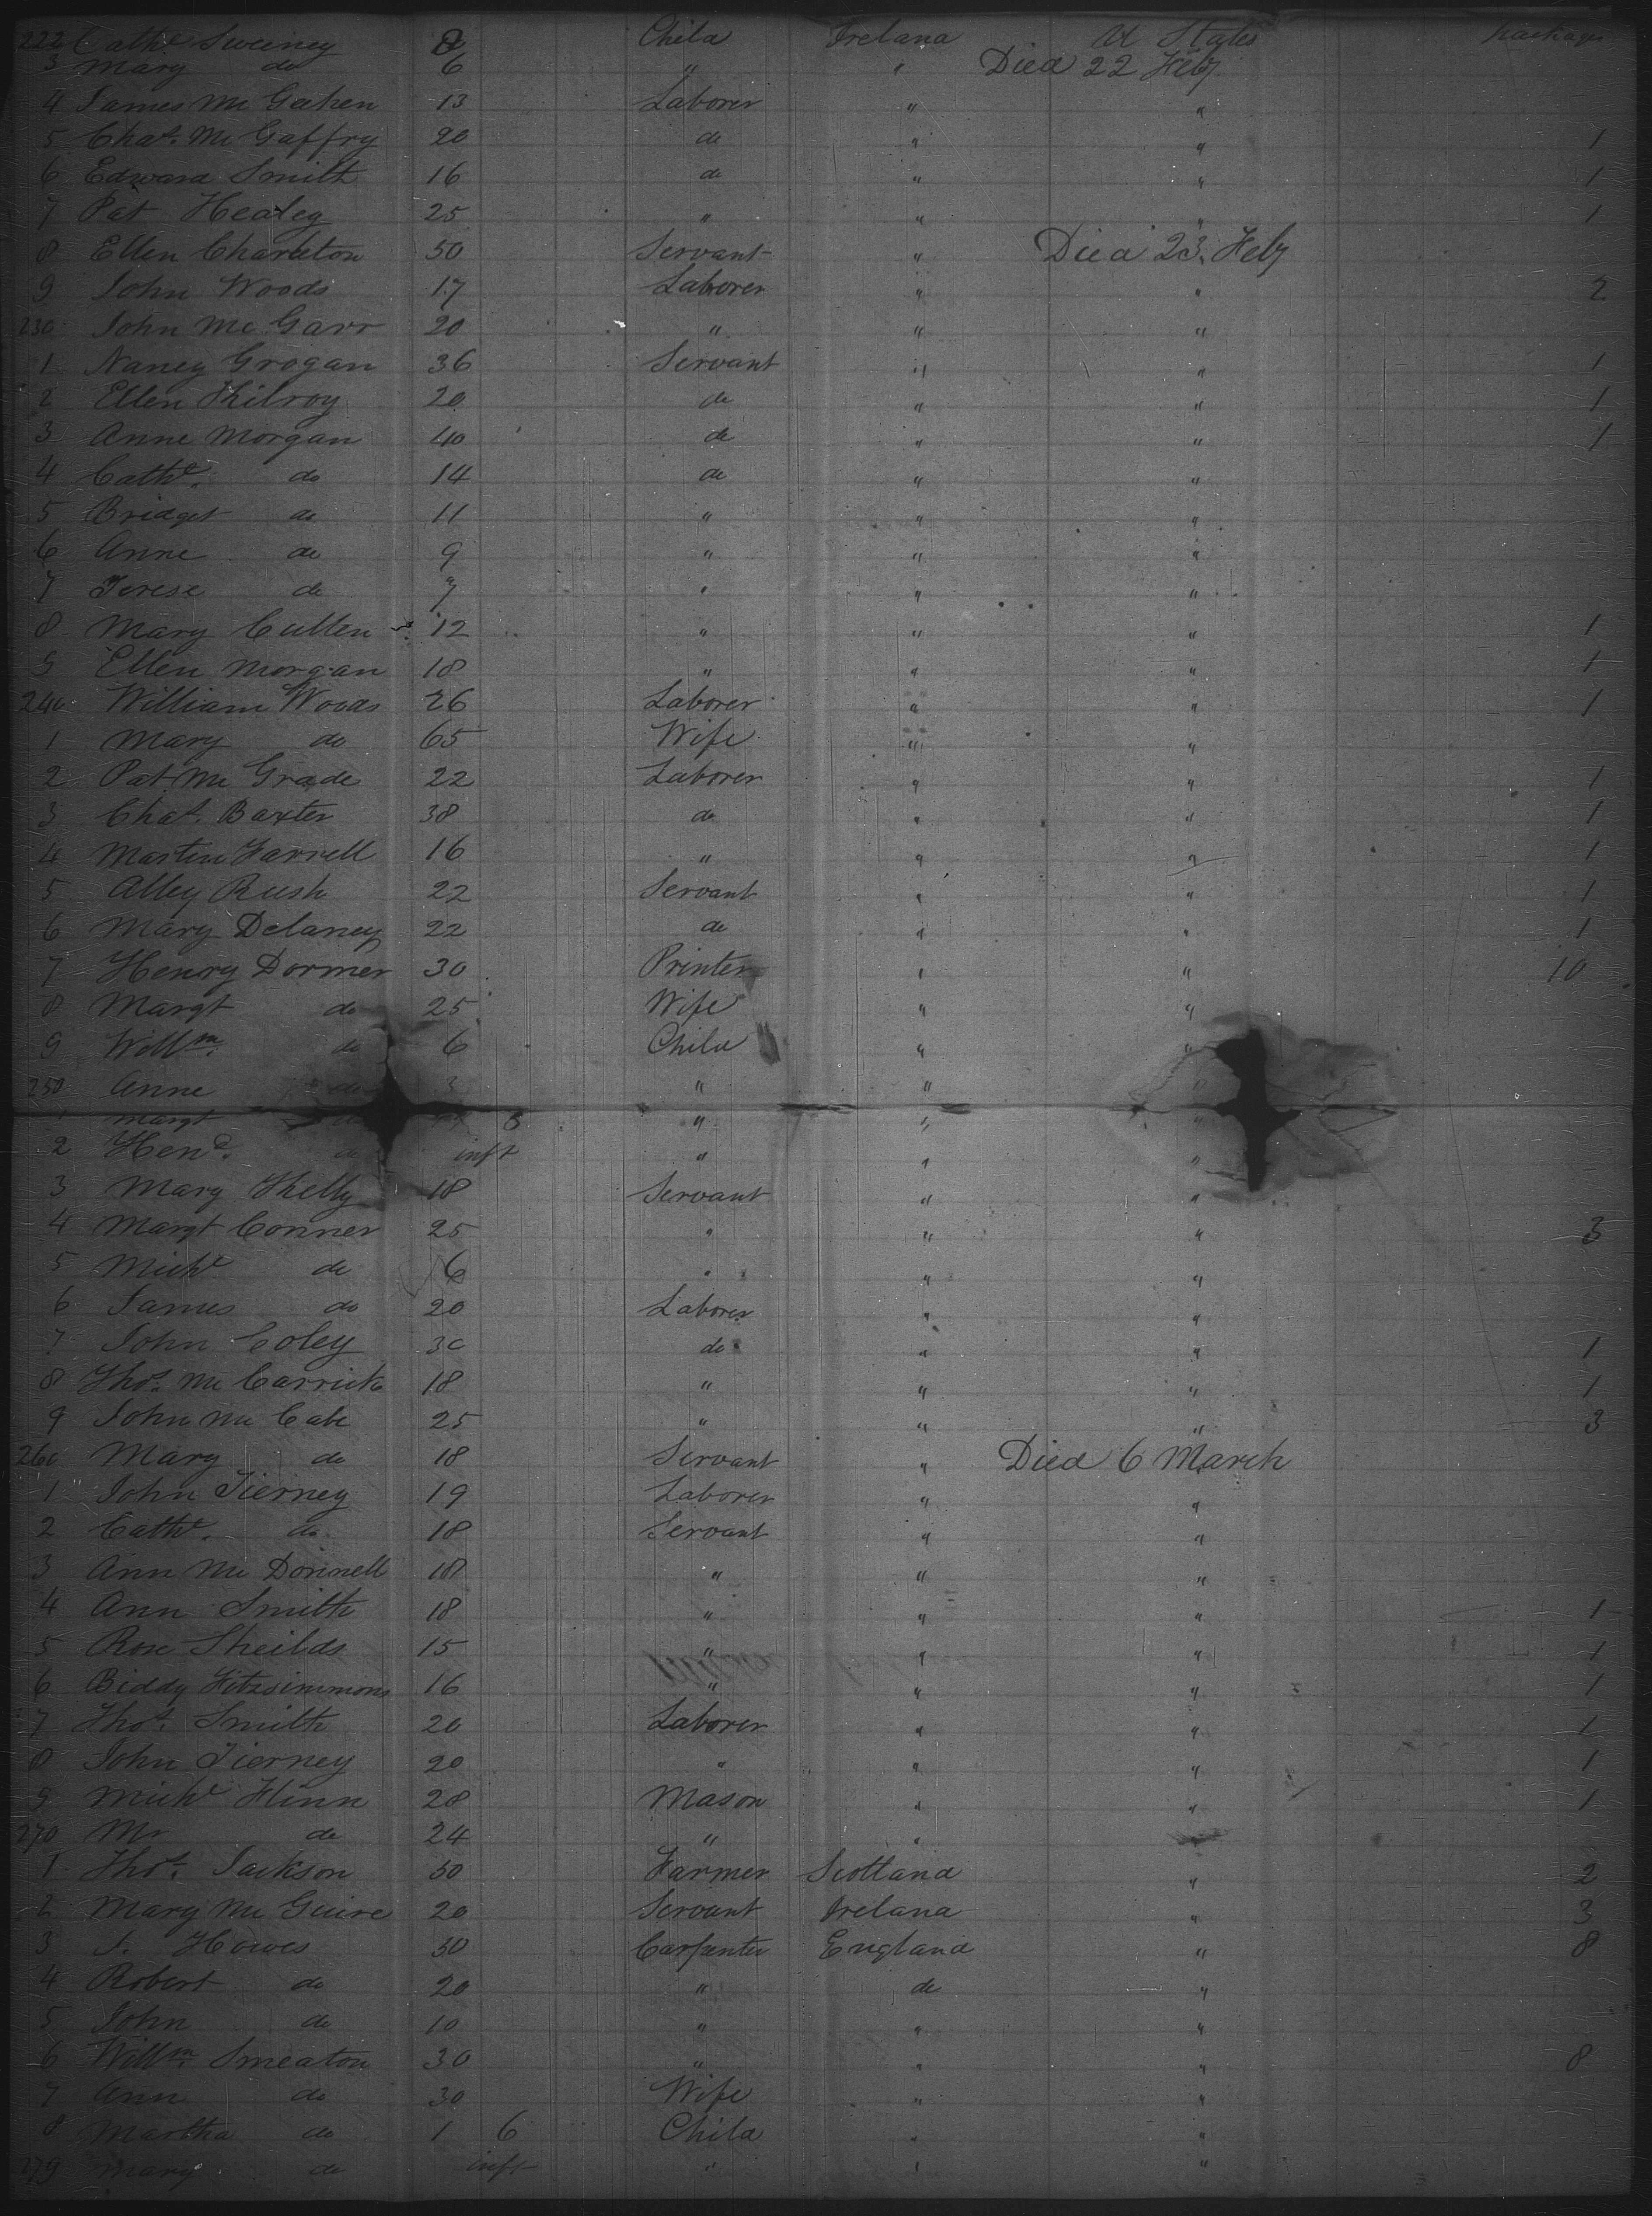 222 Cathe Sweeney 8 Child Ireland U States packages
3 Mary do 6 " " Died 22 Feby
4 James Mc Gahen 13 Laborer " "
5 Chas. Mc Gaffry 20 do " " 1
6 Edward Smith 16 do " " 1
7 Pat Healey 25 " " " 1
8 Ellen Charleton 50 Servant " Died 23. Feby
9 John Woods 17 Laborer " " 2
230 John Mc Garr 20 " " "
1 Nancy Grogan 36 Servant " " 1
2 Ellen Kilroy 20 do " " 1
3 Anne Morgan 40 do " " 1
4 Cathe. do 14 do " "
5 Bridget do 11 " " "
6 Anne do 9 " " "
7 Terese do 7 " " "
8 Mary Cullen 12 " " " 1
9 Ellen Morgan 18 " " " 1
240 William Woods 26 Laborer " " 1
1 Mary do 65 Wife " "
2 Pat Mc Grade 22 Laborer " " 1
3 Chas. Baxter 38 do " " 1
4 Martin Farrell 16 " " " 1
5 Alley Rush 22 Servant " " 1
6 Mary Delaney 22 do " " 1
7 Henry Dormer 30 Printer " " 10
8 Margt do 25 Wife " "
9 Willm. do 6 Child " "
250 Anne do 3 " " "
1 Margt do " " "
2 Hena. do inft " " "
3 Mary Kelly 18 Servant " "
4 Margt Conner 25 " " " 3
5 Michl do 6 " " "
6 James do 20 Laborer " "
7 John Coley 30 do " " 1
8 Thos. Mc Carrick 18 " " " 1
9 John Mc Cabe 25 " " " 3
260 Mary do 18 Servant " Died 6 March
1 John Tierney 19 Laborer " "
2 Cathe. do 18 Servant " "
3 Ann Mc Donnell 18 " " "
4 Ann Smith 18 " " " 1
5 Rose Sheilds 15 " " " 1
6 Biddy Fitzsimmons 16 " " " 1
7 Thos. Smith 20 Laborer " " 1
8 John Tierney 20 " " " 1
9 Michl Flinn 28 Mason " " 1
270 Mr do 24 " "
1 Thos. Jackson 50 Farmer Scotland " 2
2 Mary Mc Guire 20 Servant Ireland " 3
3 J. Howes 30 Carpenter England " 8
4 Robert do 20 " do "
5 John do 10 " " "
6 Willm. Smeaton 30 " " " 8
7 Ann do 30 Wife " "
8 Martha do 1 6 Child " "
279 Mary do inft " " "